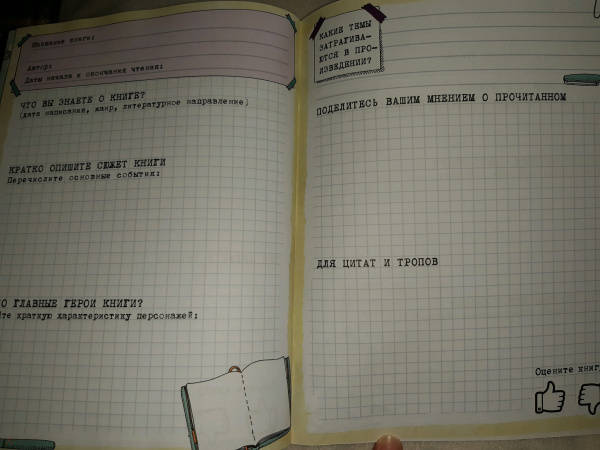 Название книги:
Автор:
Даты начала и окончания чтения:
ЧТО ВЫ ЗНАЕТЕ О КНИГЕ?
(дата написания, жанр, литературное направление)
КРАТКО ОПИШИТЕ СЮЖЕТ КНИГИ
Перечислите основные события:
О ГЛАВНЫЕ ГЕРОИ КНИГИ?
те краткую характеристику персонажей:
КАКИЕ ТЕМЫ
ЗАТРАГИВА-
ЮТСЯ В ПРО-
ИЗВЕДЕНИИ?
ПОДЕЛИТЕСЬ ВАШИМ МНЕНИЕМ О ПРОЧИТАННОМ
ДЛЯ ЦИТАТ И ТРОПОВ
Оцените книг